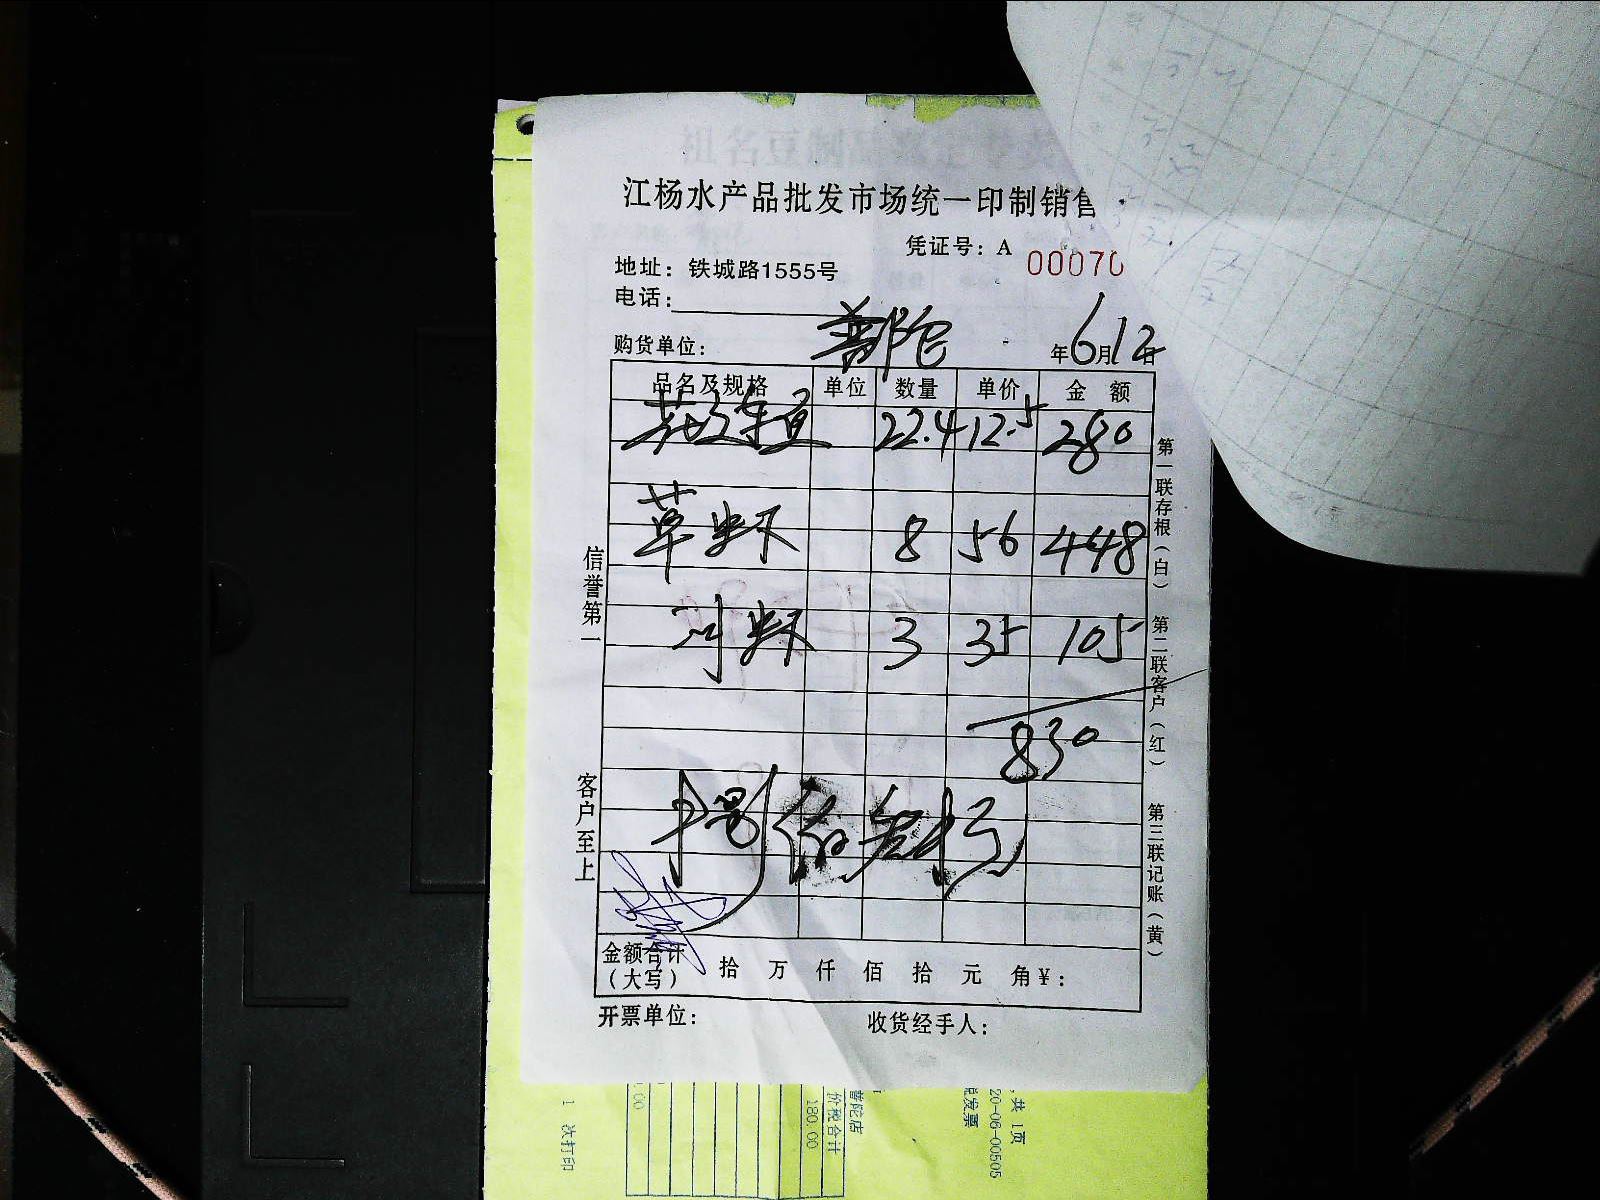 江杨水产品批发市场统一印制销售
凭证号：A 00070
地址：铁城路1555号
电话：
购货单位：普陀 年6月12日
品名及规格 单位 数量 单价 金额
22.4 12.5 280
草虾 8 56 448
河虾 3 35 105
830
信誉第一
客户至上
第一联存根（白）
第二联客户（红）
第三联记账（黄）
金额合计（大写） 拾 万 仟 佰 拾 元 角 ￥：
开票单位： 收货经手人：
共 1页
20-06-00505
税发票
普陀店
价税合计
180.00
1 次打印